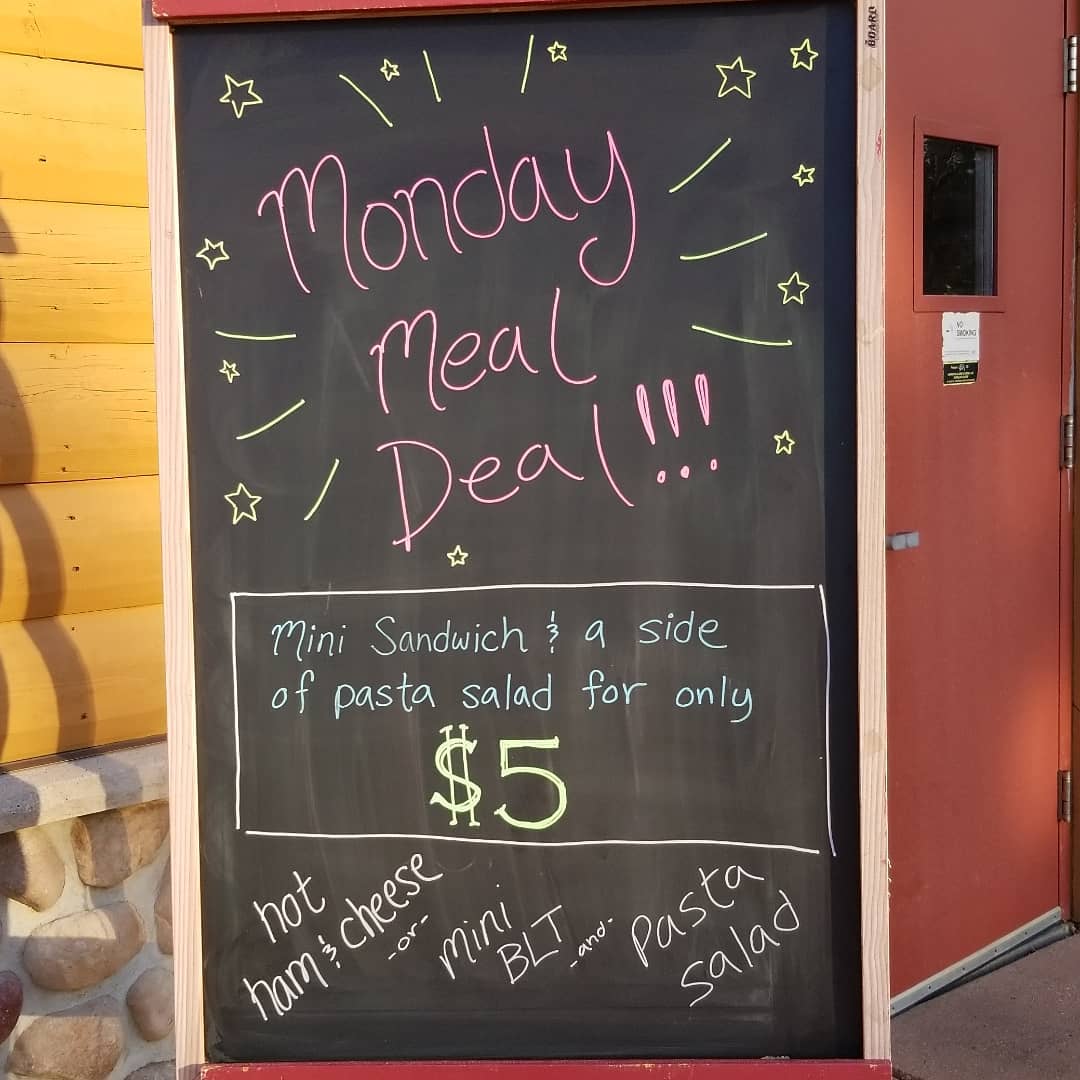 BOARD
Monday
Meal
Deal!!!
Mini Sandwich & a side
of pasta salad for only
$5
hot
ham & cheese
-or-
mini
BLT
-and-
Pasta
salad
NO
SMOKING